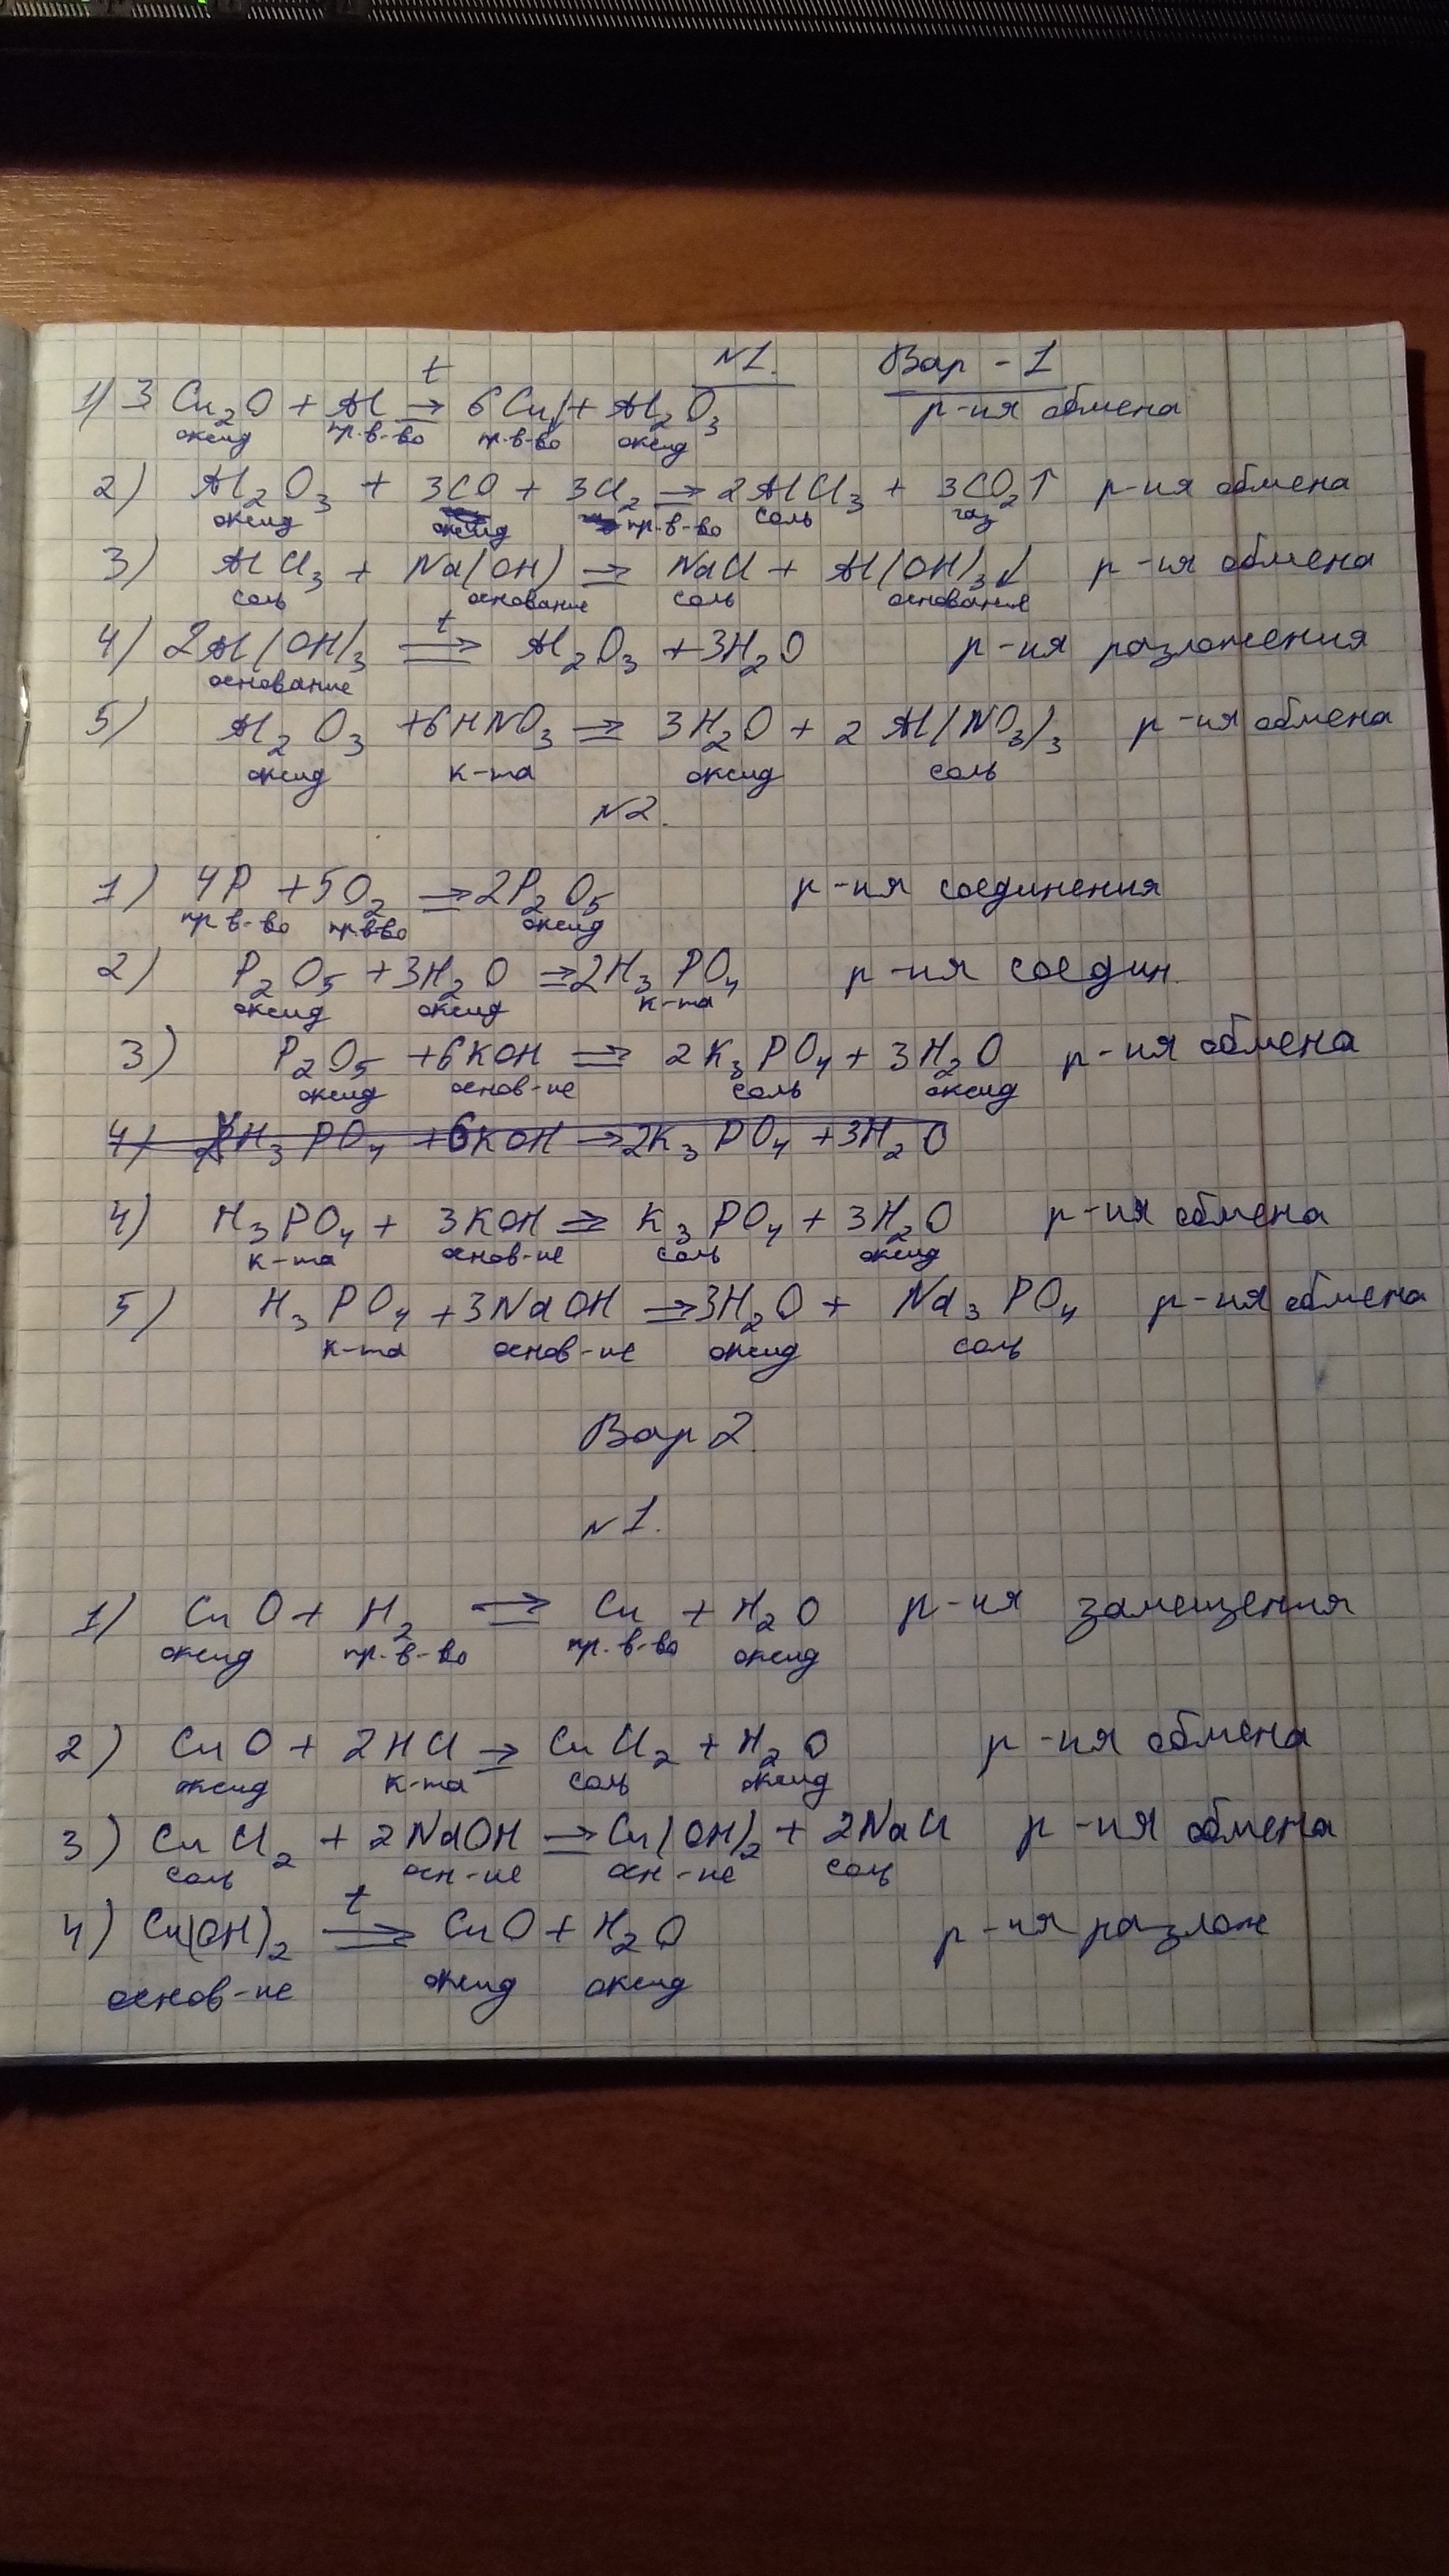 N1. Вар - 1
1) 3Cu₂O + Al →ᵗ 6Cu↓ + Al₂O₃ р-ия обмена
оксид пр.в-во пр.в-во оксид
2) Al₂O₃ + 3CO + 3Cl₂ ⇒ 2AlCl₃ + 3CO₂↑ р-ия обмена
оксид оксид пр.в-во соль газ
3) AlCl₃ + Na(OH) ⇒ NaCl + Al(OH)₃↓ р-ия обмена
соль основание соль основания
4) 2Al(OH)₃ ⇒ᵗ Al₂O₃ + 3H₂O р-ия разложения
основание
5) Al₂O₃ + 6HNO₃ ⇒ 3H₂O + 2Al(NO₃)₃ р-ия обмена
оксид к-та оксид соль
N2.
1) 4P + 5O₂ ⇒ 2P₂O₅ р-ия соединения
пр в-во пр.в-во оксид
2) P₂O₅ + 3H₂O ⇒ 2H₃PO₄ р-ия соедин.
оксид оксид к-та
3) P₂O₅ + 6KOH ⇒ 2K₃PO₄ + 3H₂O р-ия обмена
оксид основ-ие соль оксид
4) H₃PO₄ + 6KOH → 2K₃PO₄ + 3H₂O
4) H₃PO₄ + 3KOH ⇒ K₃PO₄ + 3H₂O р-ия обмена
к-та основ-ие соль оксид
5) H₃PO₄ + 3NaOH ⇒ 3H₂O + Na₃PO₄ р-ия обмена
к-та основ-ие оксид соль
Вар 2.
N1.
1) CuO + H₂ ⇒ Cu + H₂O р-ия замещения
оксид пр.в-во пр.в-во оксид
2) CuO + 2HCl ⇒ CuCl₂ + H₂O р-ия обмена
оксид к-та соль оксид
3) CuCl₂ + 2NaOH ⇒ Cu(OH)₂ + 2NaCl р-ия обмена
соль осн-ие осн-ие соль
4) Cu(OH)₂ ⇒ᵗ CuO + H₂O р-ия разлож
основ-ие оксид оксид